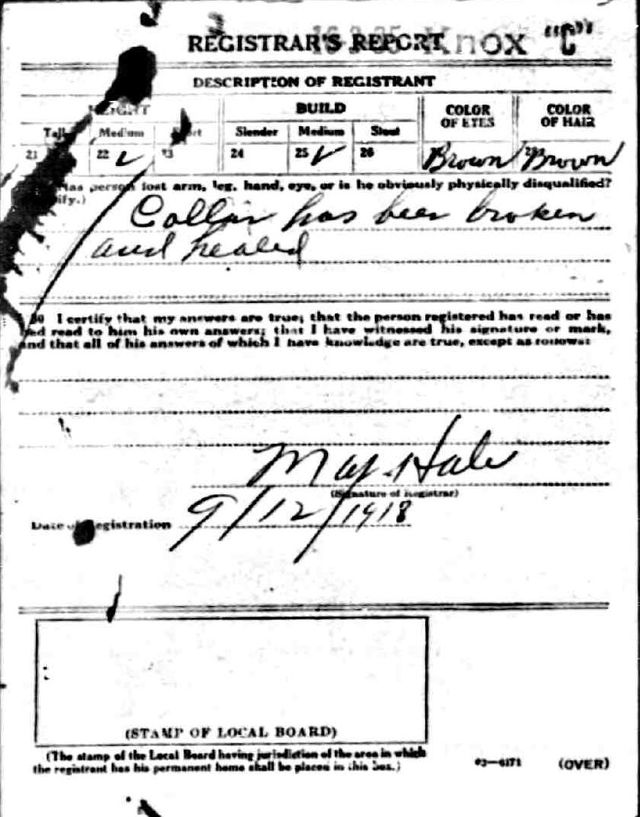 REGISTRAR'S REPORT Knox "C"
DESCRIPTION OF REGISTRANT
HEIGHT BUILD COLOR OF EYES COLOR OF HAIR
Tall Medium Short Slender Medium Stout
21 22 ✓ 23 24 25 ✓ 26 Brown Brown
Has person lost arm, leg, hand, eye, or is he obviously physically disqualified?
Collar has been broken
and healed
30 I certify that my answers are true; that the person registered has read or has
had read to him his own answers; that I have witnessed his signature or mark,
and that all of his answers of which I have knowledge are true, except as follows:
Hale
(Signature of Registrar)
Date of Registration 9/12/1918
(STAMP OF LOCAL BOARD)
(The stamp of the Local Board having jurisdiction of the area in which
the registrant has his permanent home shall be placed in this box.)
03—6171 (OVER)